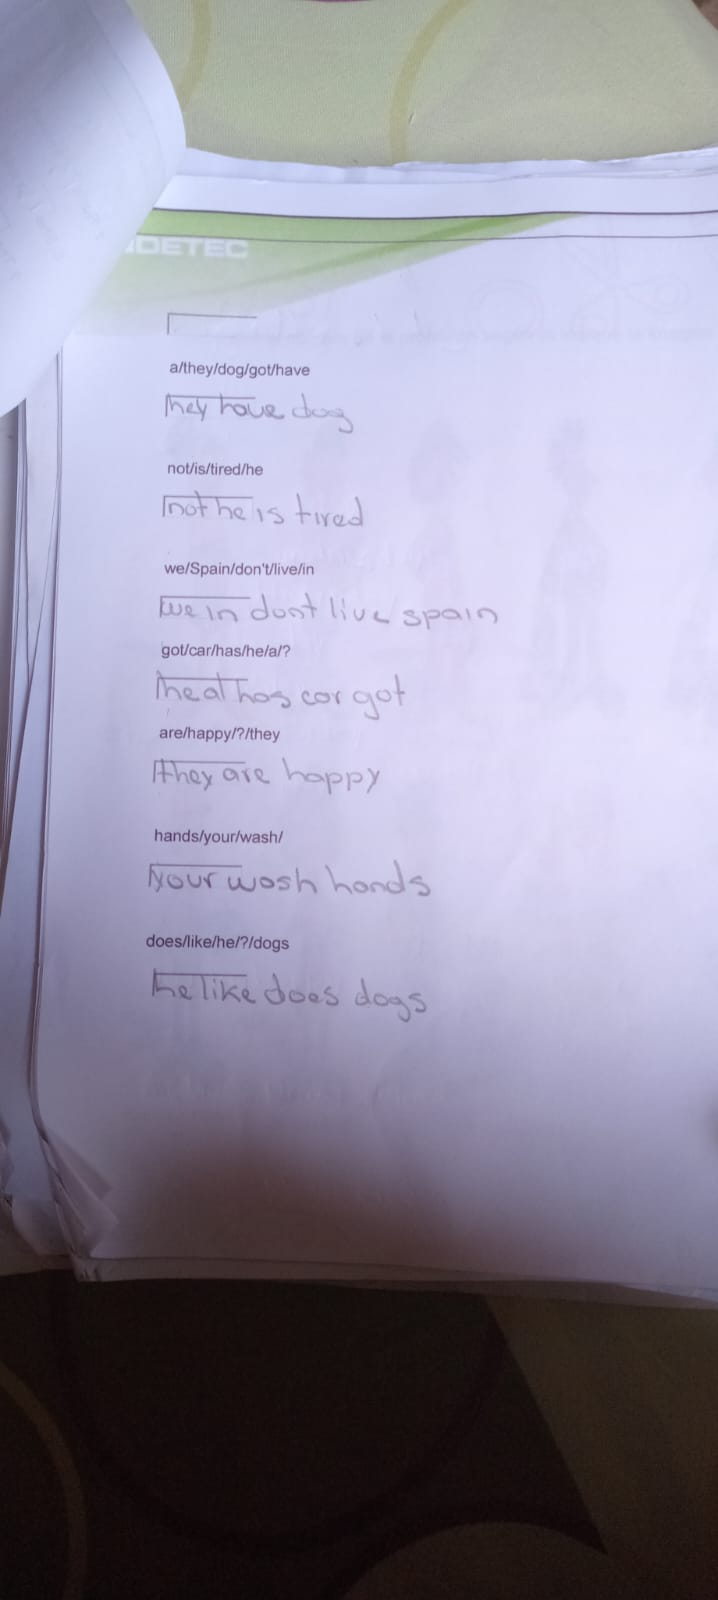 DETEC
a/they/dog/got/have
they have dog
not/is/tired/he
not he is tired
we/Spain/don't/live/in
we in dont live spain
got/car/has/he/a/?
he a has car got
are/happy/?/they
they are happy
hands/your/wash/
your wash hands
does/like/he/?/dogs
he like does dogs